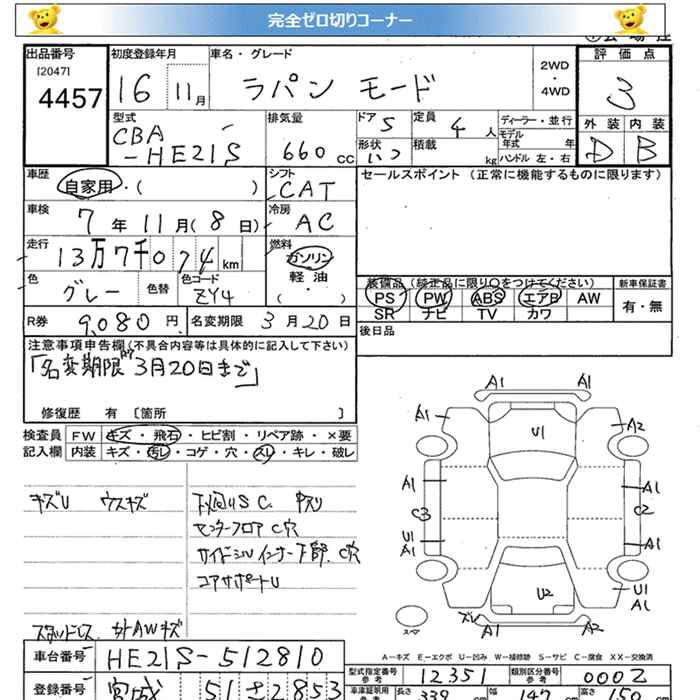 完全ゼロ切りコーナー
出品番号
[2047]
4457
初度登録年月
16 11月
車名・グレード
ラパン モード
2WD
・
4WD
評価点
3
外装 内装
D B
型式
CBA
-HE21S
排気量
660 cc
ドア 5
定員 4 人
形状
積載 kg
ディーラー・並行
モデル
年式 年
ハンドル 左・右
車歴
自家用・( )
シフト
CAT
セールスポイント (正常に機能するものに限ります)
車検
7年11月(8日)
冷房
AC
走行
13万7千074km
燃料
ガソリン
軽油
・
( )
色
グレー
色替
色コード
ZY4
装備品(純正品に限り〇をつけてください)
PS PW ABS エアB AW
SR ナビ TV カワ
新車保証書
有・無
R券 9,080円
名変期限 3月20日
後日品
注意事項申告欄(不具合内容等は具体的に記入して下さい)
「名変期限 3月20日まで」
修復歴 有〔箇所 〕
検査員
記入欄
FW キズ・飛石・ヒビ割・リペア跡・×要
内装 キズ・汚レ・コゲ・穴・スレ・キレ・破レ
キズU ウスキズ
下廻りS C. サスリ
センターフロア C穴
サイドシル インナー下部. C穴
コアサポートU
スタッドレス. 社外AWキズ
A1 A1
A1 U1 A2
A1 A1
C3 C2
U1
A1 A1
U2 U1
A1
ズレ
A1 A2
スペア
A-キズ E-エクボ U-凹み W-補修跡 S-サビ C-腐食 XX-交換済
車台番号 HE21S-512810
型式指定番号
参考
12351
類別区分番号
参考
0002
登録番号 宮城 51 さ2853
車津証明用
参考
長さ
339 cm
幅
147
高さ
150 cm